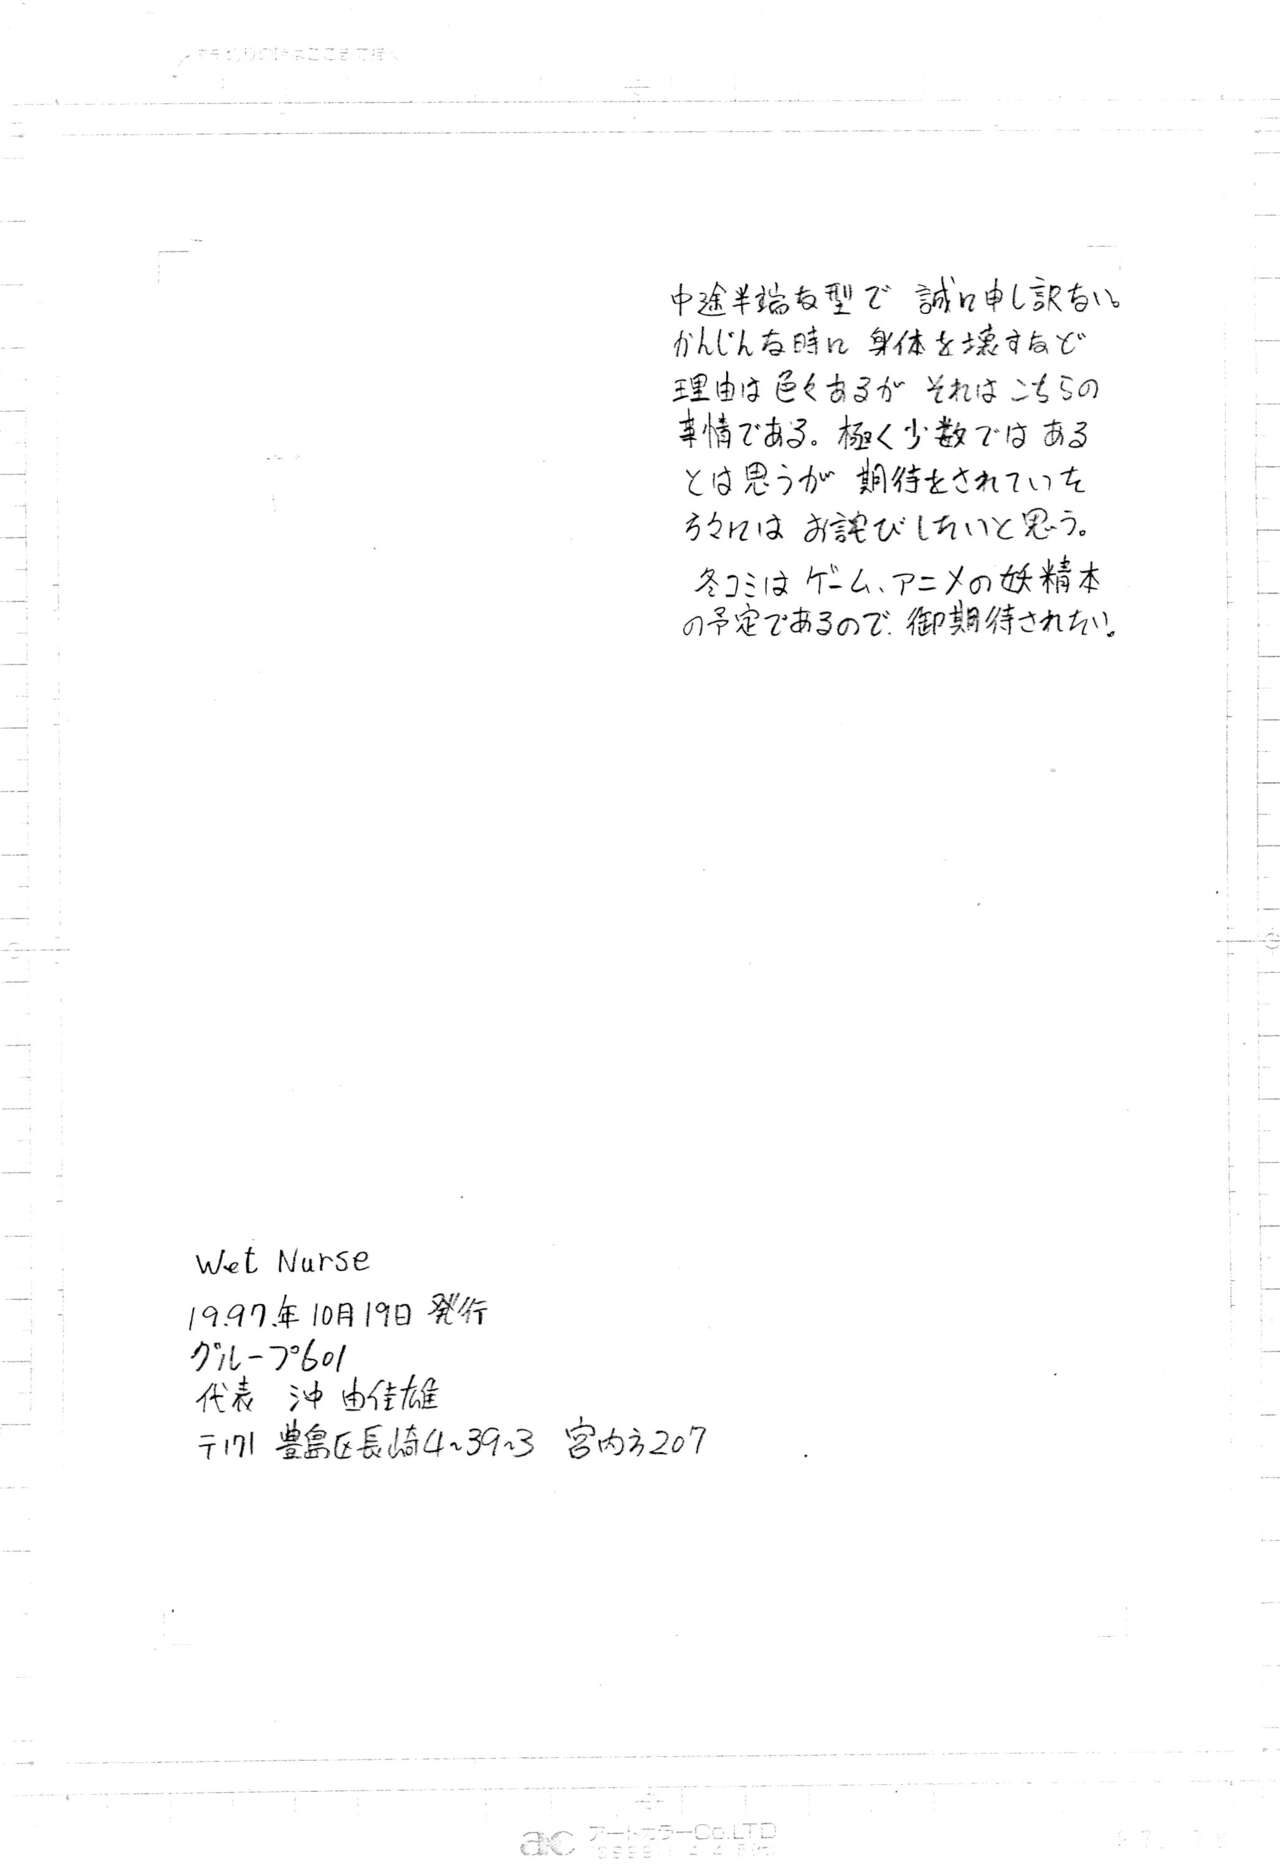 中途半端な型で 誠に申し訳ない。
かんじんな時に 身体を壊すなど
理由は色々あるが それはこちらの
事情である。極く少数ではある
とは思うが 期待をされていた
方々には お詫びしたいと思う。
冬コミは ゲーム、アニメの妖精本
の予定であるので、御期待されたい。
Wet Nurse
1997年10月19日 発行
グループ601
代表 沖 由佳雄
〒171 豊島区長崎4~39~3 宮内方207
ac アートカラーCo.LTD